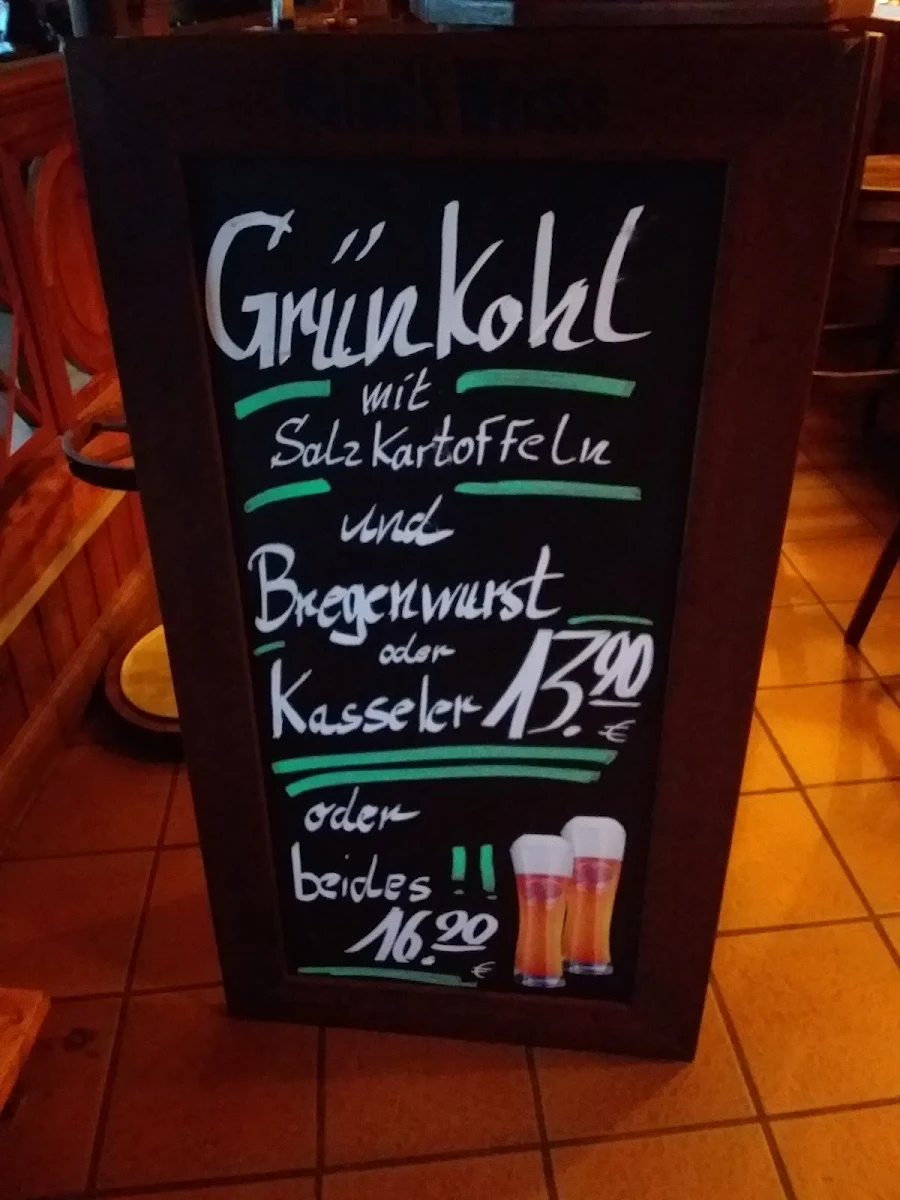 Grünkohl
mit
Salzkartoffeln
und
Bregenwurst
oder
Kasseler 13.90 €
oder
beides !!
16.90 €